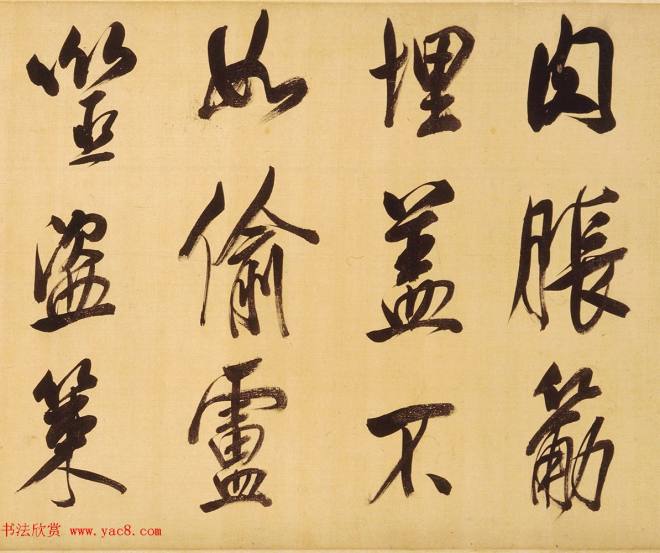 肉脹筋
埋蓋不
如偷靈
筮盜策
书法欣赏 www.yac8.com